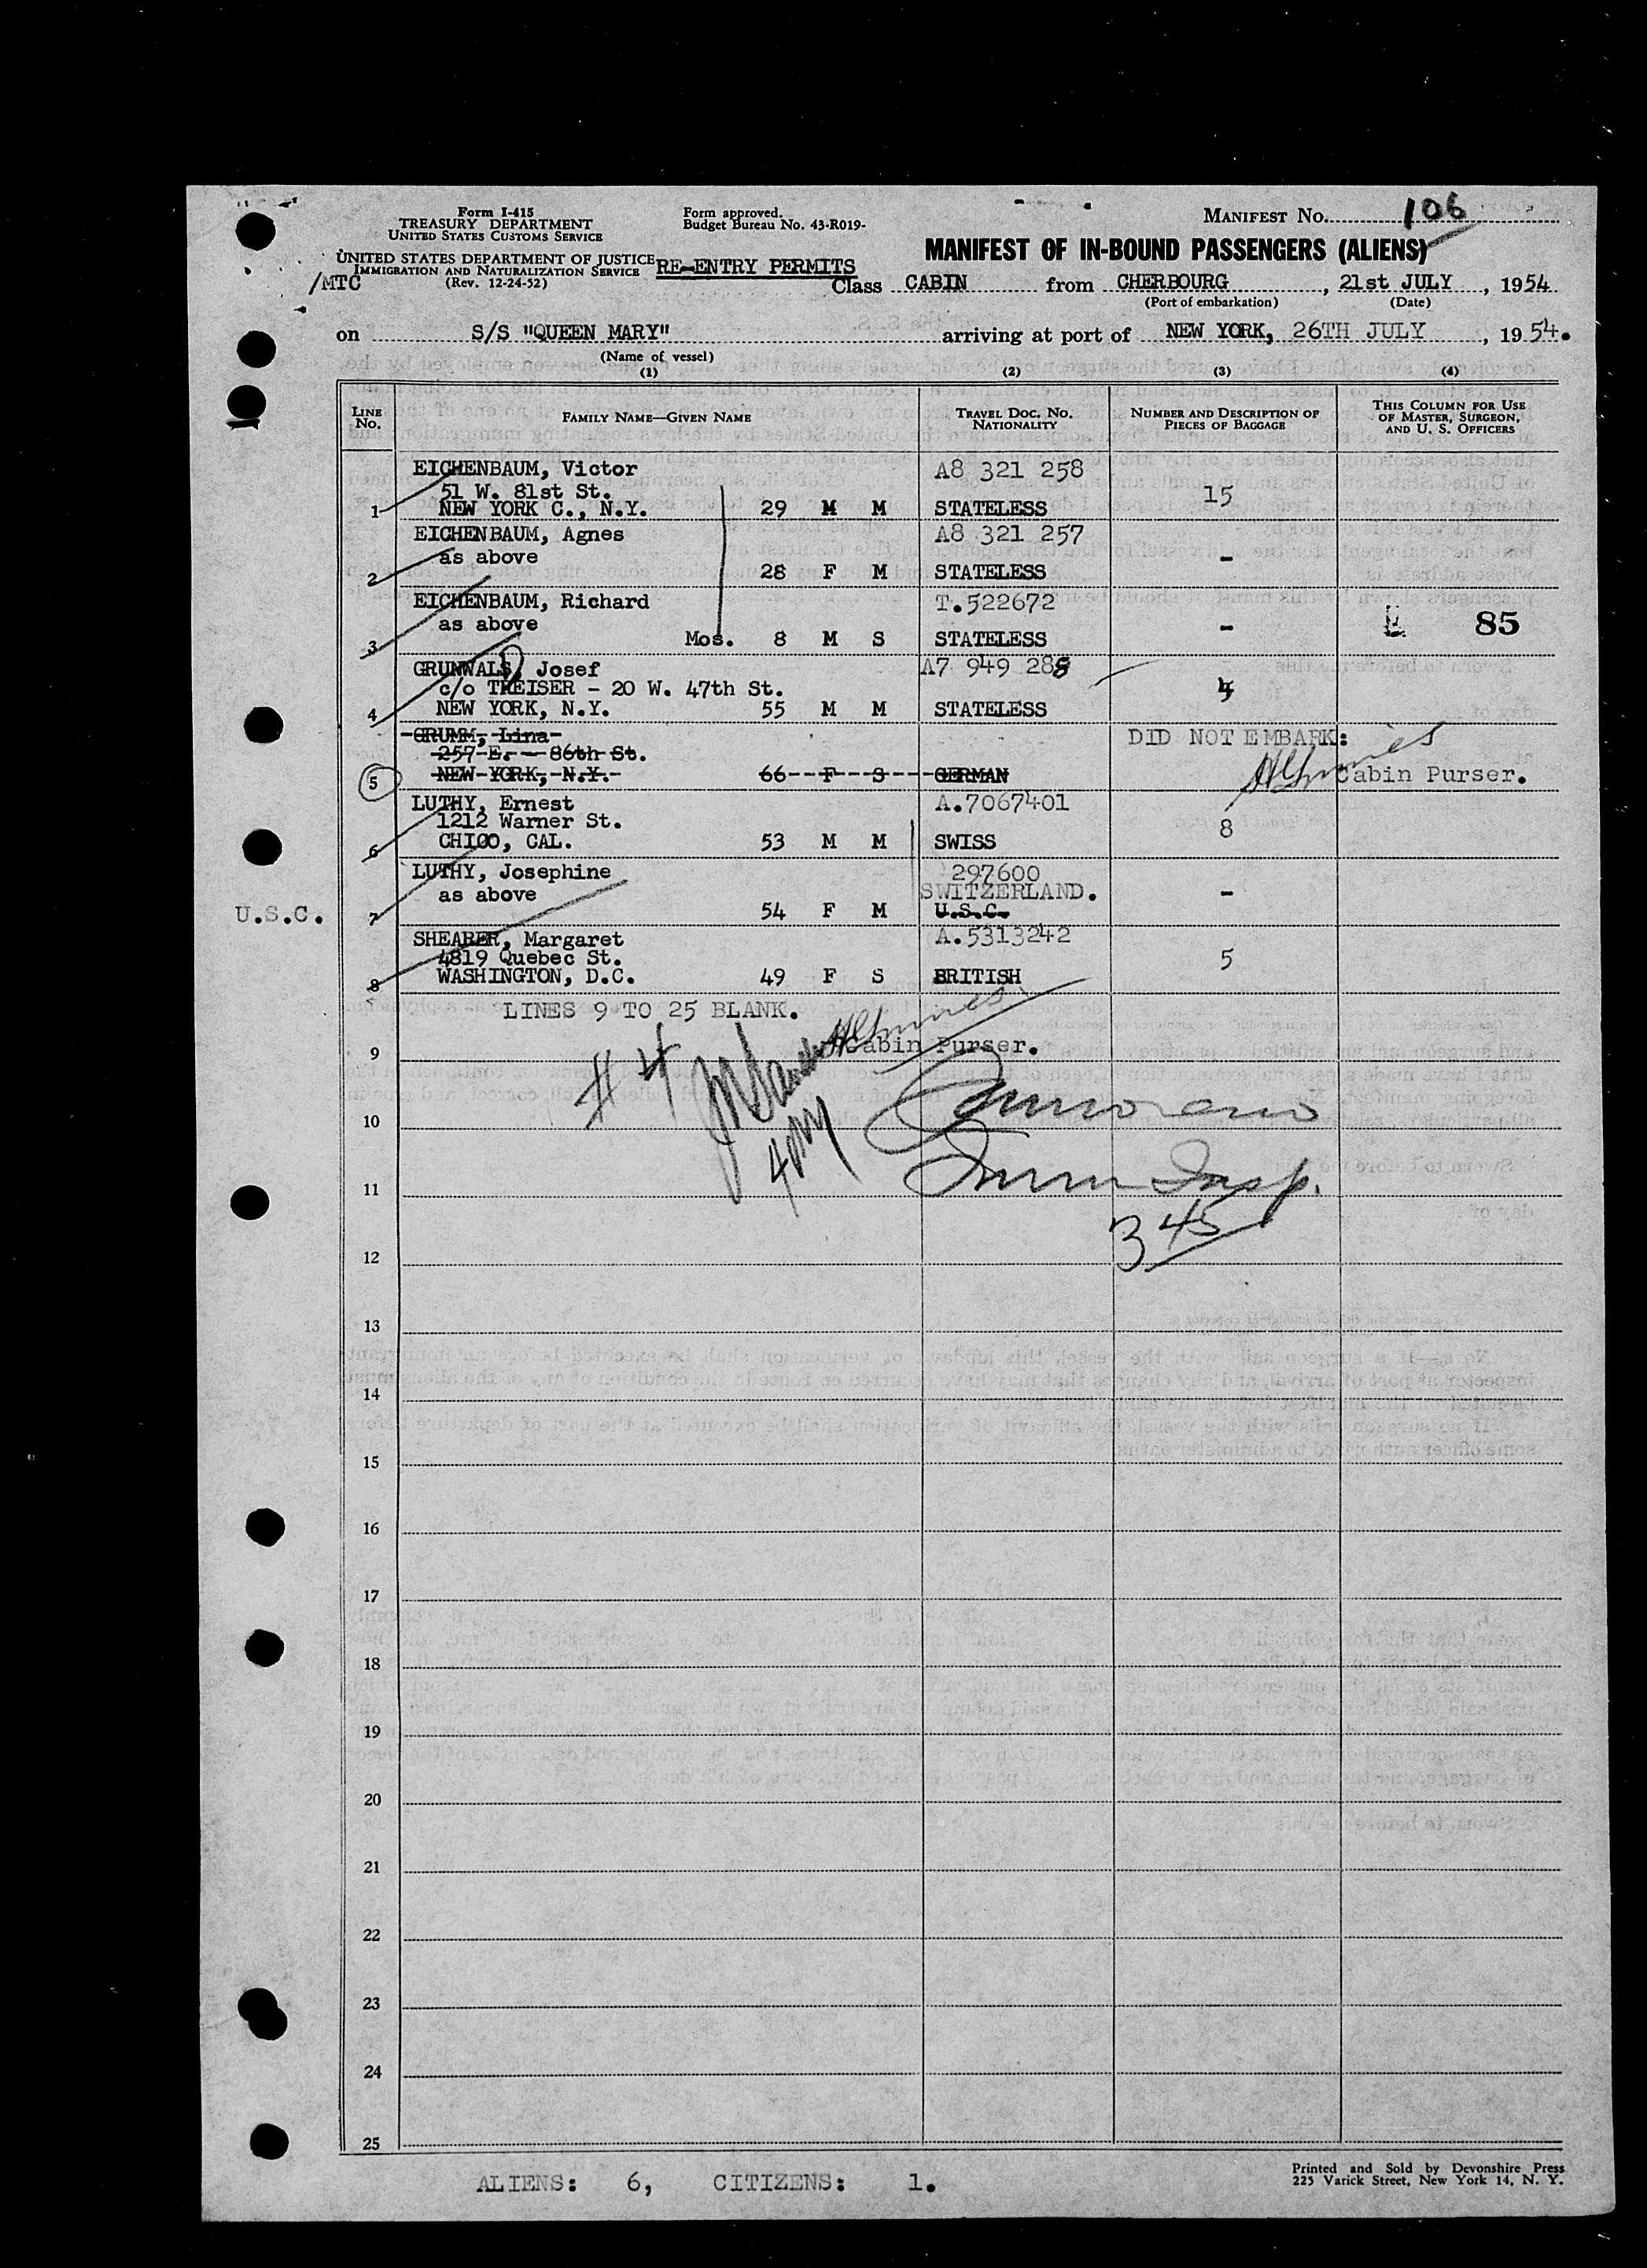 Form I-415
TREASURY DEPARTMENT
UNITED STATES CUSTOMS SERVICE
UNITED STATES DEPARTMENT OF JUSTICE
IMMIGRATION AND NATURALIZATION SERVICE
(Rev. 12-24-52)
/MTC
Form approved.
Budget Bureau No. 43-R019-
RE-ENTRY PERMITS
MANIFEST NO. 106
MANIFEST OF IN-BOUND PASSENGERS (ALIENS)
Class CABIN from CHERBOURG, 21st JULY, 1954
(Port of embarkation) (Date)
on S/S "QUEEN MARY" arriving at port of NEW YORK, 26TH JULY, 1954.
(Name of vessel)
(1) (2) (3) (4)
LINE NO. FAMILY NAME—GIVEN NAME TRAVEL DOC. NO. NATIONALITY NUMBER AND DESCRIPTION OF PIECES OF BAGGAGE THIS COLUMN FOR USE OF MASTER, SURGEON, AND U. S. OFFICERS
EICHENBAUM, Victor A8 321 258
51 W. 81st St. 15
1 NEW YORK C., N.Y. 29 M M STATELESS
EICHENBAUM, Agnes A8 321 257
as above -
2 28 F M STATELESS
EICHENBAUM, Richard T.522672
as above - 85
3 Mos. 8 M S STATELESS
GRUNWALD, Josef A7 949 288
c/o TREISER - 20 W. 47th St. 4
4 NEW YORK, N.Y. 55 M M STATELESS
GRUMM, Lina DID NOT EMBARK:
257 E. - 86th St.
5 NEW YORK, N.Y. 66 F S GERMAN Cabin Purser.
LUTHY, Ernest A.7067401
1212 Warner St. 8
6 CHICO, CAL. 53 M M SWISS
LUTHY, Josephine 297600
as above SWITZERLAND. -
U.S.C. 7 54 F M U.S.C.
SHEARER, Margaret A.5313242
4819 Quebec St. 5
8 WASHINGTON, D.C. 49 F S BRITISH
LINES 9 TO 25 BLANK.
Cabin Purser.
9
10
11
Imm Insp.
345
12
13
14
15
16
17
18
19
20
21
22
23
24
25
ALIENS: 6, CITIZENS: 1.
Printed and Sold by Devonshire Press
225 Varick Street, New York 14, N. Y.